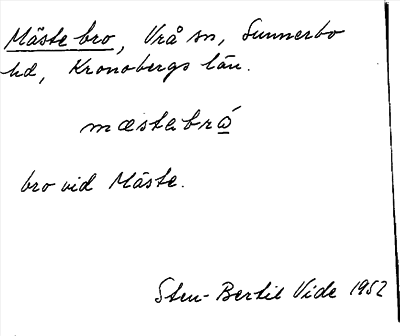 Mäste bro, Vrå sn, Sunnerbo
hd, Kronobergs län.
mæstabró̲
bro vid Mäste.
Sten-Bertil Vide 1952